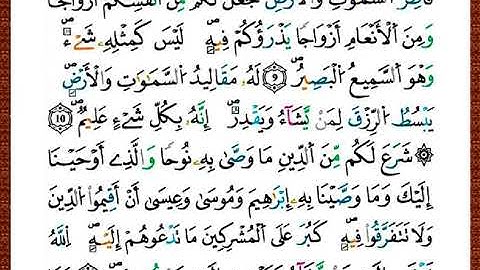 فَاطِرُ السَّمَٰوَٰتِ وَالْأَرْضِ جَعَلَ لَكُم مِّنْ أَنفُسِكُمْ أَزْوَٰجًا
وَمِنَ الْأَنْعَٰمِ أَزْوَٰجًا يَذْرَؤُكُمْ فِيهِ لَيْسَ كَمِثْلِهِ شَيْءٌ
وَهُوَ السَّمِيعُ الْبَصِيرُ 9 لَهُ مَقَالِيدُ السَّمَٰوَٰتِ وَالْأَرْضِ
يَبْسُطُ الرِّزْقَ لِمَن يَّشَآءُ وَيَقْدِرُ إِنَّهُ بِكُلِّ شَيْءٍ عَلِيمٌ 10
۞ شَرَعَ لَكُم مِّنَ الدِّينِ مَا وَصَّىٰ بِهِ نُوحًا وَالَّذِي أَوْحَيْنَا
إِلَيْكَ وَمَا وَصَّيْنَا بِهِ إِبْرَٰهِيمَ وَمُوسَىٰ وَعِيسَىٰ أَنْ أَقِيمُوا الدِّينَ
وَلَا تَتَفَرَّقُوا فِيهِ كَبُرَ عَلَى الْمُشْرِكِينَ مَا تَدْعُوهُمْ إِلَيْهِ اللَّهُ